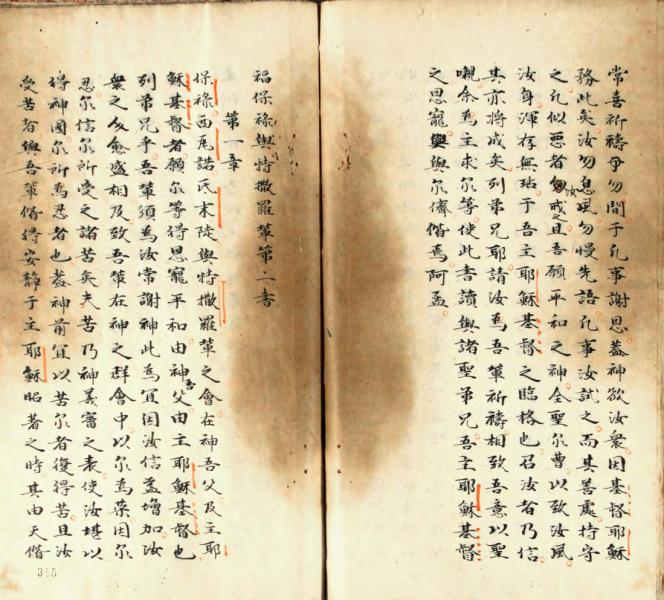 常喜祈禱毋勿間于凡事謝恩蓋神欲汝衆因基督耶穌
務此矣汝勿息風勿慢先語凡事汝試之而其善處持守
之凡似惡者汝勿戒之且吾願平和之神全聖尔曹以致汝風
汝身渾存無玷于吾主耶穌基督之臨格也召汝者乃信
其亦將成矣列弟兄耶請汝為吾輩祈禱相致吾意以聖
嚫余為主求尔等使此書讀與諸聖弟兄吾主耶穌基督
之恩寵與尔儕偕焉阿孟
福保祿與特撒羅輩第二書
第一章
保祿西尾諾氐末陡與特撒羅輩之會在神吾父及主耶
穌基督者願尔等得恩寵平和由神吾父由主耶穌基督也
列弟兄乎吾輩須為汝常謝神此為宜因汝信益增加汝
衆之多愈盛相及致吾輩在神之群會中以尔為榮因尔
忍尔信尔所受之諸苦矣夫苦乃神義審之表使汝堪以
得神國尔所為忍者也蓋神前宜以苦尔者復得苦且汝
受苦者與吾輩偕得安靜于主耶穌昭著之時其由天偕
345